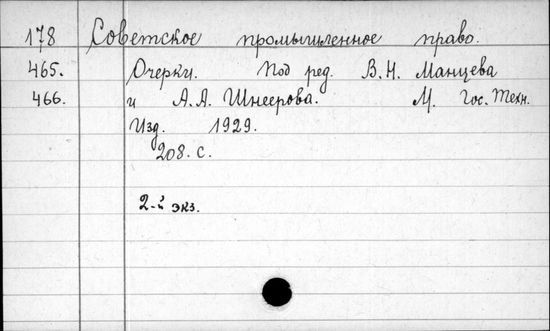 178 Советское промышленное право.
465. Очерки. Под ред. В.Н. Манцева
466. и А.А. Шнеерова. М. Гос. Техн.
Изд. 1929.
208. с.
2-й экз.